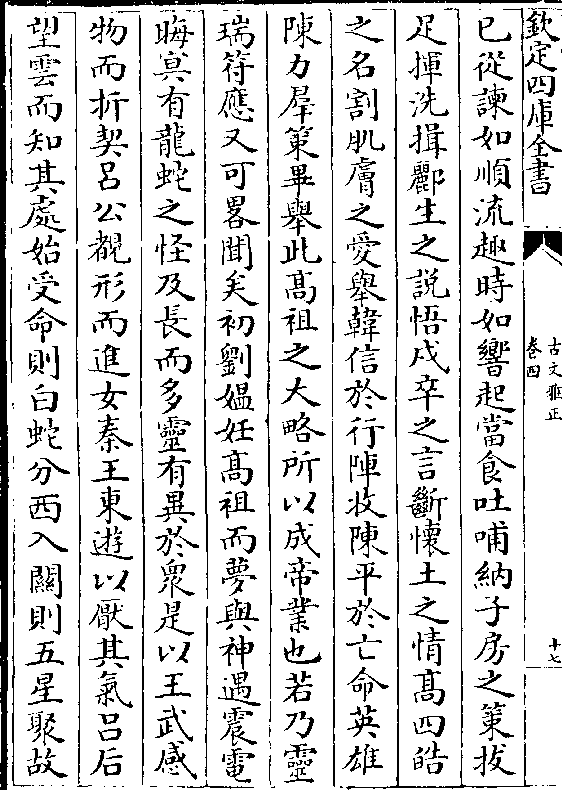 欽定四庫全書
古文雅正
卷四
十七
已從諫如順流趣時如響起當食吐哺納子房之策拔
足揮洗揖酈生之說悟戍卒之言斷懷土之情髙四皓
之名割肌膚之愛舉韓信於行陣收陳平於亡命英雄
陳力羣策畢舉此髙祖之大略所以成帝業也若乃靈
瑞符應又可畧聞矣初劉媼妊髙祖而夢與神遇震電
晦冥有龍蛇之怪及長而多靈有異於衆是以王武感
物而折契呂公覩形而進女秦王東遊以厭其氣呂后
望雲而知其處始受命則白蛇分西入關則五星聚故